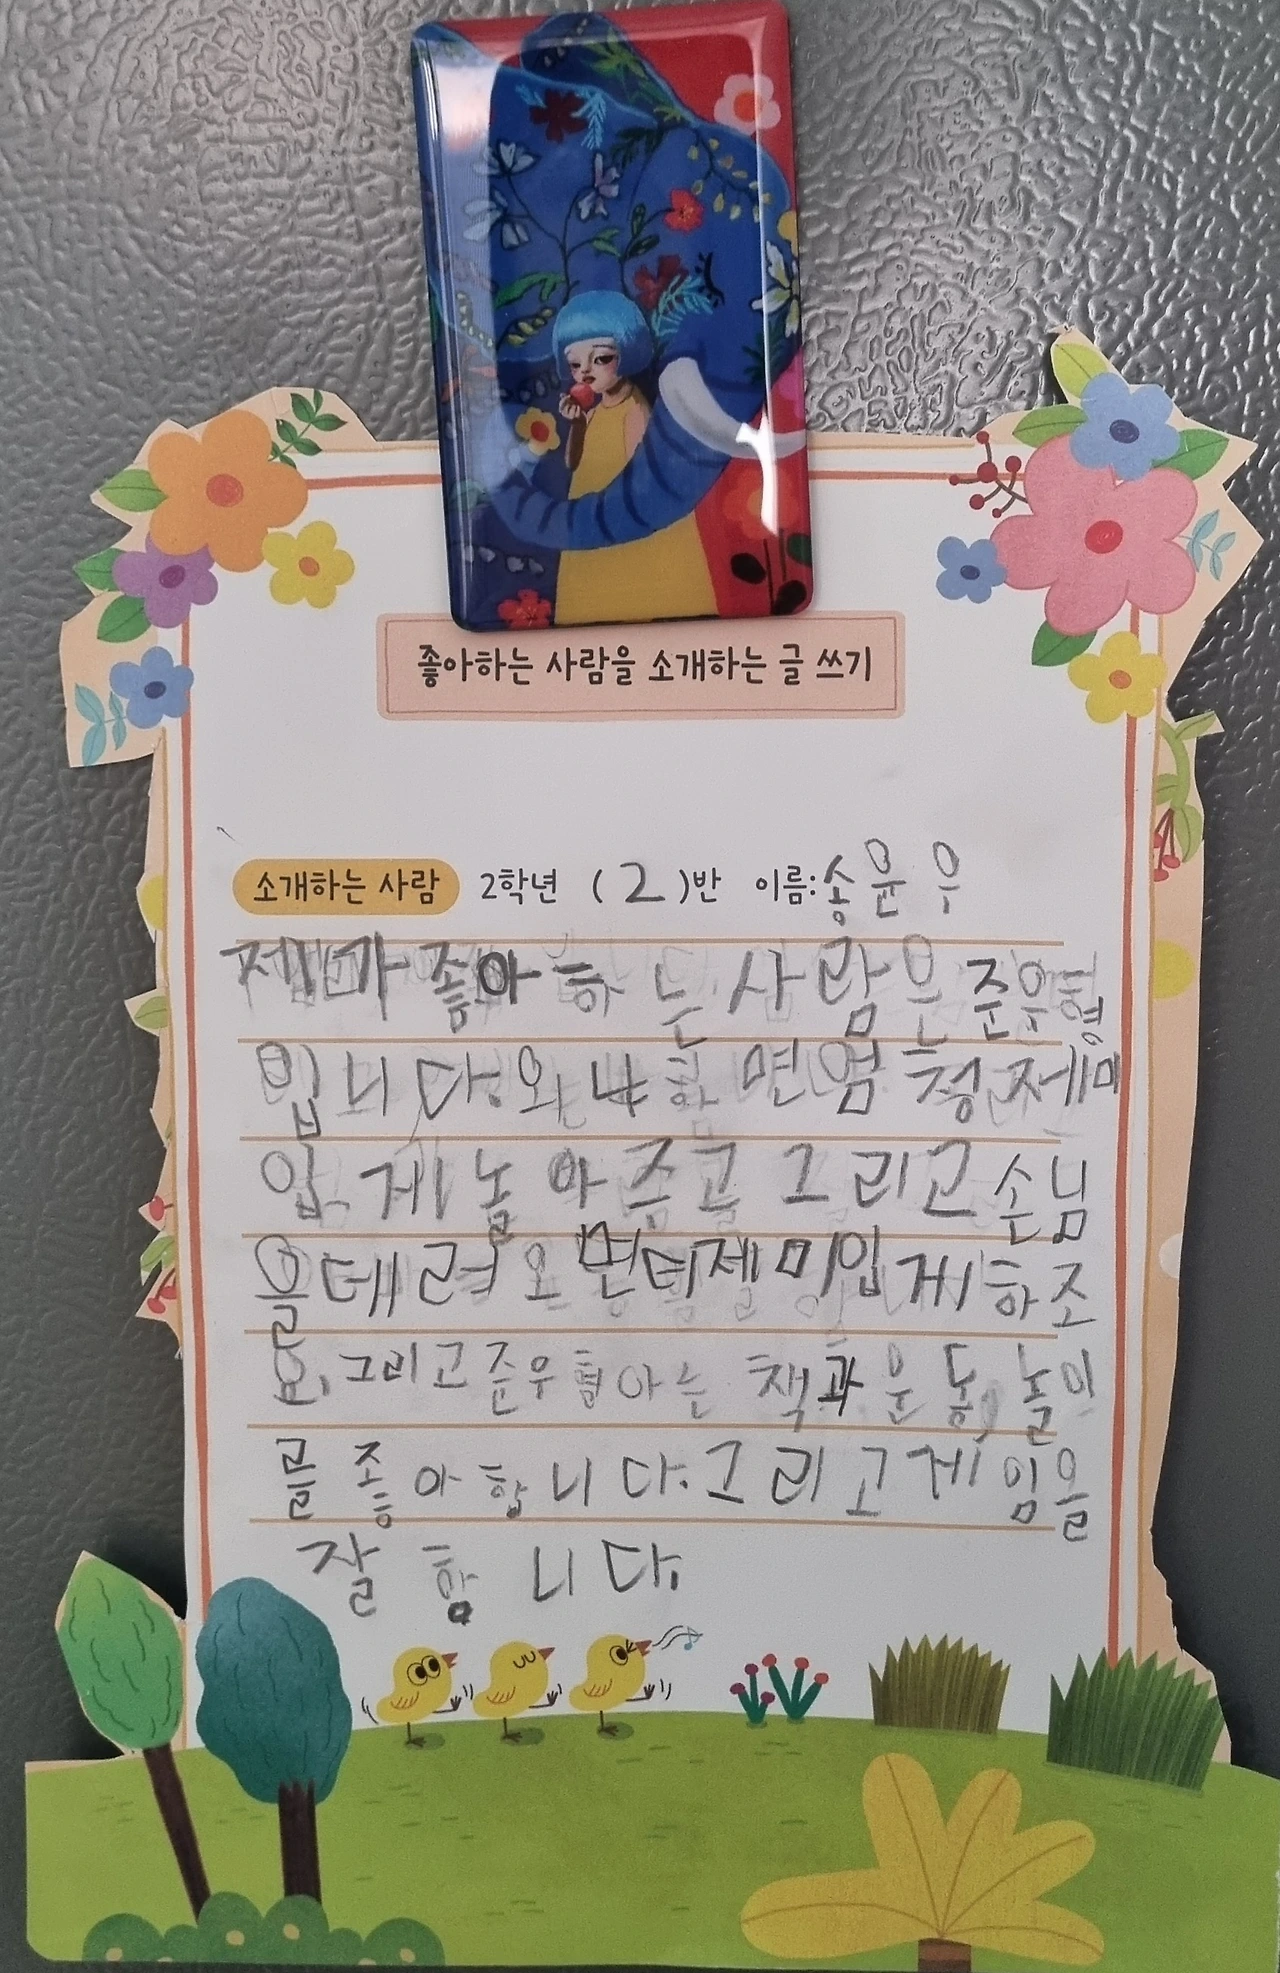 좋아하는 사람을 소개하는 글 쓰기
소개하는 사람 2학년 (2)반 이름:송윤우
제가 좋아하는 사람은 준우형
입니다. 와냐하면 엄청 제미
입게 놀아주고 그리고 손님
을 데려오면 더 제미입게 하조
요. 그리고 준우형아는 책과 운동, 놀이
를 좋아합니다. 그리고 게임을
잘 합니다.